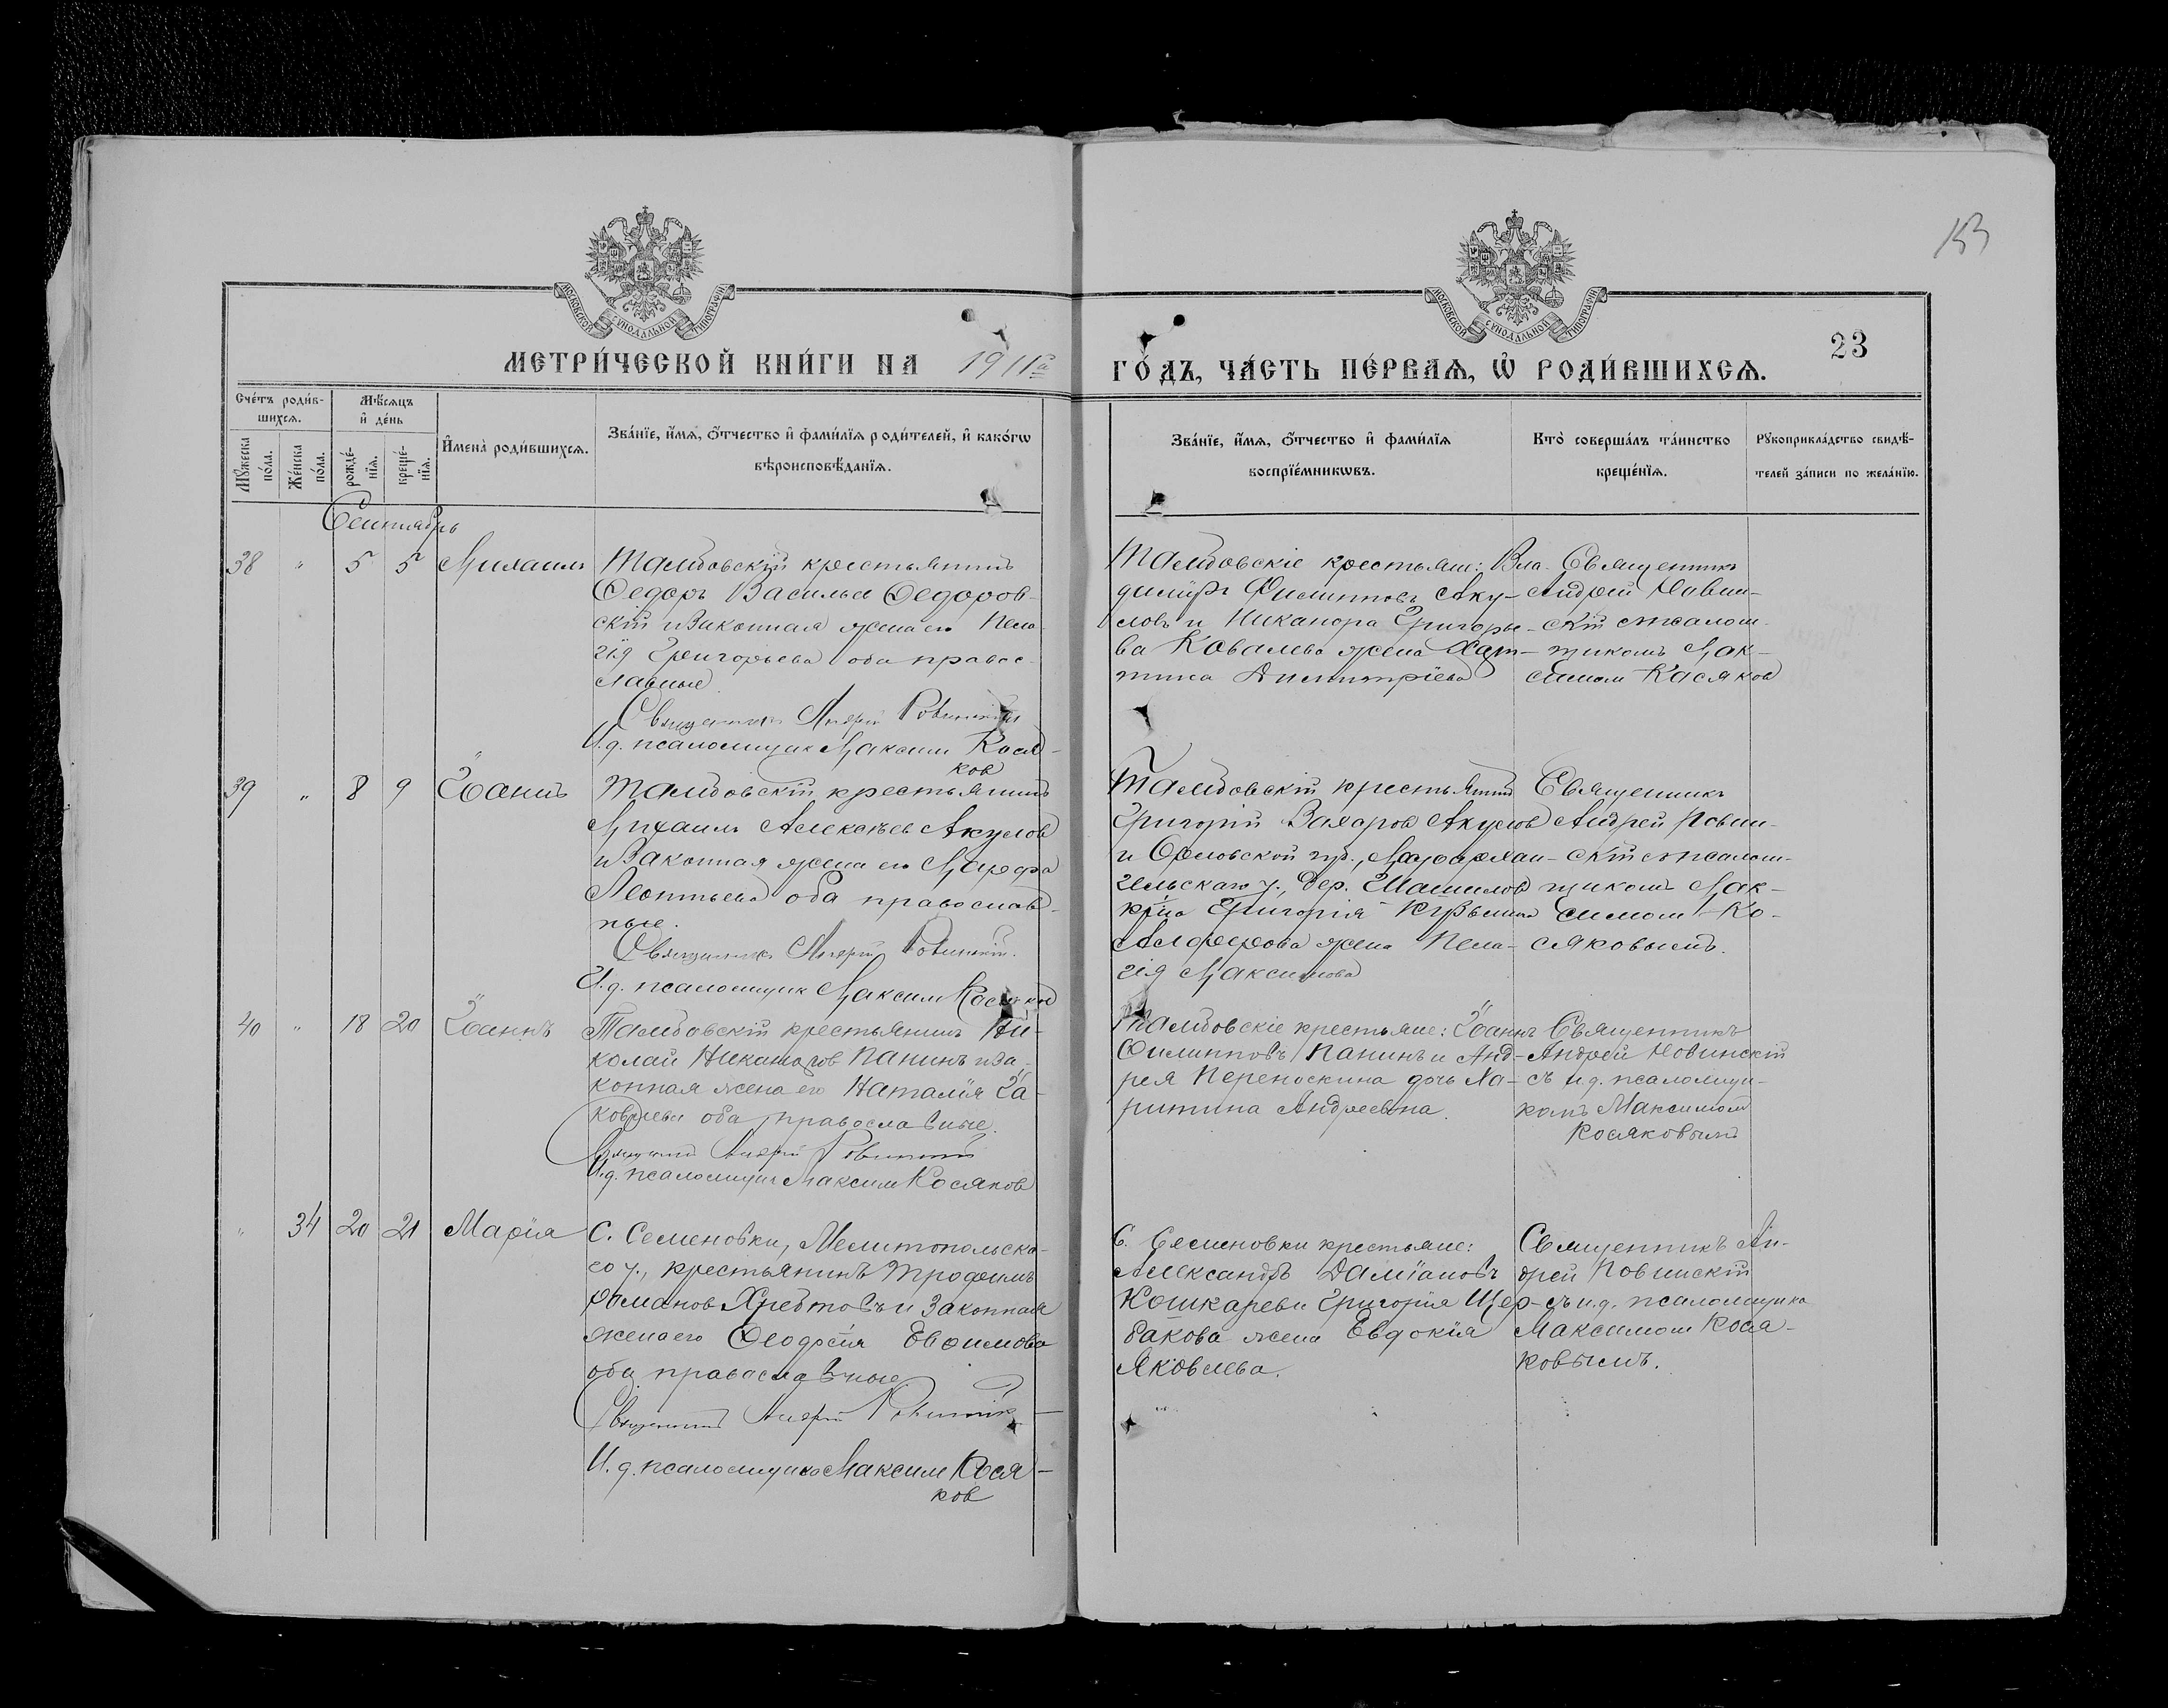 153
МОСКОВСКОЙ СѴНОДАЛЬНОЙ ТИПОГРАФІИ
МОСКОВСКОЙ СѴНОДАЛЬНОЙ ТИПОГРАФІИ
МЕТРИ́ЧЕСКОЙ КНИ́ГИ НА 1911
ГО́ДЪ, ЧА́СТЬ ПЕ́РВАѦ, Ѡ҆ РОДИ́ВШИХСѦ.
23
Сче́тъ роди́в-
шихсѧ.
Мꙋ́жеска
по́ла.
Же́нска
по́ла.
Мѣ́сѧцъ
и҆ де́нь
рожде́-
нїѧ.
креще́-
нїѧ.
И҆мена̀ роди́вшихсѧ.
Зва́нїе, и҆́мѧ, ѻ҆́тчество и҆ фами́лїѧ роди́телей, и҆ како́гѡ
вѣроисповѣ́данїѧ.
Зва́нїе, и҆́мѧ, ѻ҆́тчество и҆ фами́лїѧ
воспрїе́мникѡвъ.
Кто̀ соверша́лъ та́инство
креще́нїѧ.
Рꙋкоприкла́дство свидѣ́-
телей за́писи по жела́нїю.
Сентябрь
38 " 5 5 Михаилъ
Тамбовскій крестьянинъ
Ѳедоръ Васильев Ѳедоров-
скій и законная жена его Пела-
гія Григорьева оба правос-
лавные
Священникъ Андрей Ровинскій
И.д. псаломщик Максим Кося-
ков
Тамбовскіе крестьяне: Вла-
диміръ Филиппов Аку-
лов и Никанора Григорье-
ва Ковалева жена Хар-
тина Димитріева
Священникъ
Андрей Ровин-
скій с псалом-
щикомъ Мак-
симом Косяков
39 " 8 9 Іоаннъ
Тамбовскій крестьянинъ
Михаилъ Алексѣев Акулов
и законная жена его Марфа
Леонтьева оба православ-
ные.
Священникъ Андрей Ровинскій.
И.д. псаломщик Максим Косяков
Тамбовскій крестьянин
Григорій Захаров Акулов
и Орловской губ., Малоархан-
гельскаго у., дер.
Григорія
Алферова жена Пела-
гія Максимова
Священникъ
Андрей Ровин-
скій с псалом-
щикомъ Мак-
симом Ко-
сяковымъ.
40 " 18 20 Іоаннъ
Тамбовскій крестьянинъ Ни-
колай Никаноров Панинъ и за-
конная жена его Наталія Іа-
ковлева оба православные.
Священник Андрей Ровинскій
И.д. псаломщик Максим Косяков
Тамбовскіе крестьяне: Іоаннъ
Филипповъ Панинъ и Анд-
рея Переноскина дочь Ха-
ритина Андреевна.
Священникъ
Андрей Ровинскій
съ и.д. псаломщи-
комъ Максимом
Косяковымъ
" 34 20 21 Марія
С. Семеновки, Мелитопольска-
го у., крестьянинъ Трофимъ
Романов Хребтовъ и законная
жена его Ѳеодосія Евѳимова
оба православные
Священник Андрей Ровинскій
И.д. псаломщика Максим Кося-
ков
С. Семеновки крестьяне:
Александръ Даміановъ
Кошкарев и Григорія Щер-
бакова жена Евдокія
Яковлева.
Священникъ Ан-
дрей Ровинскій
съ и.д. псаломщика
Максимом Кося-
ковымъ.